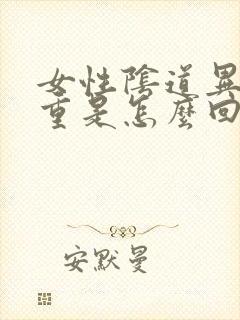 女性陰道異
重是怎麼回
安默曼